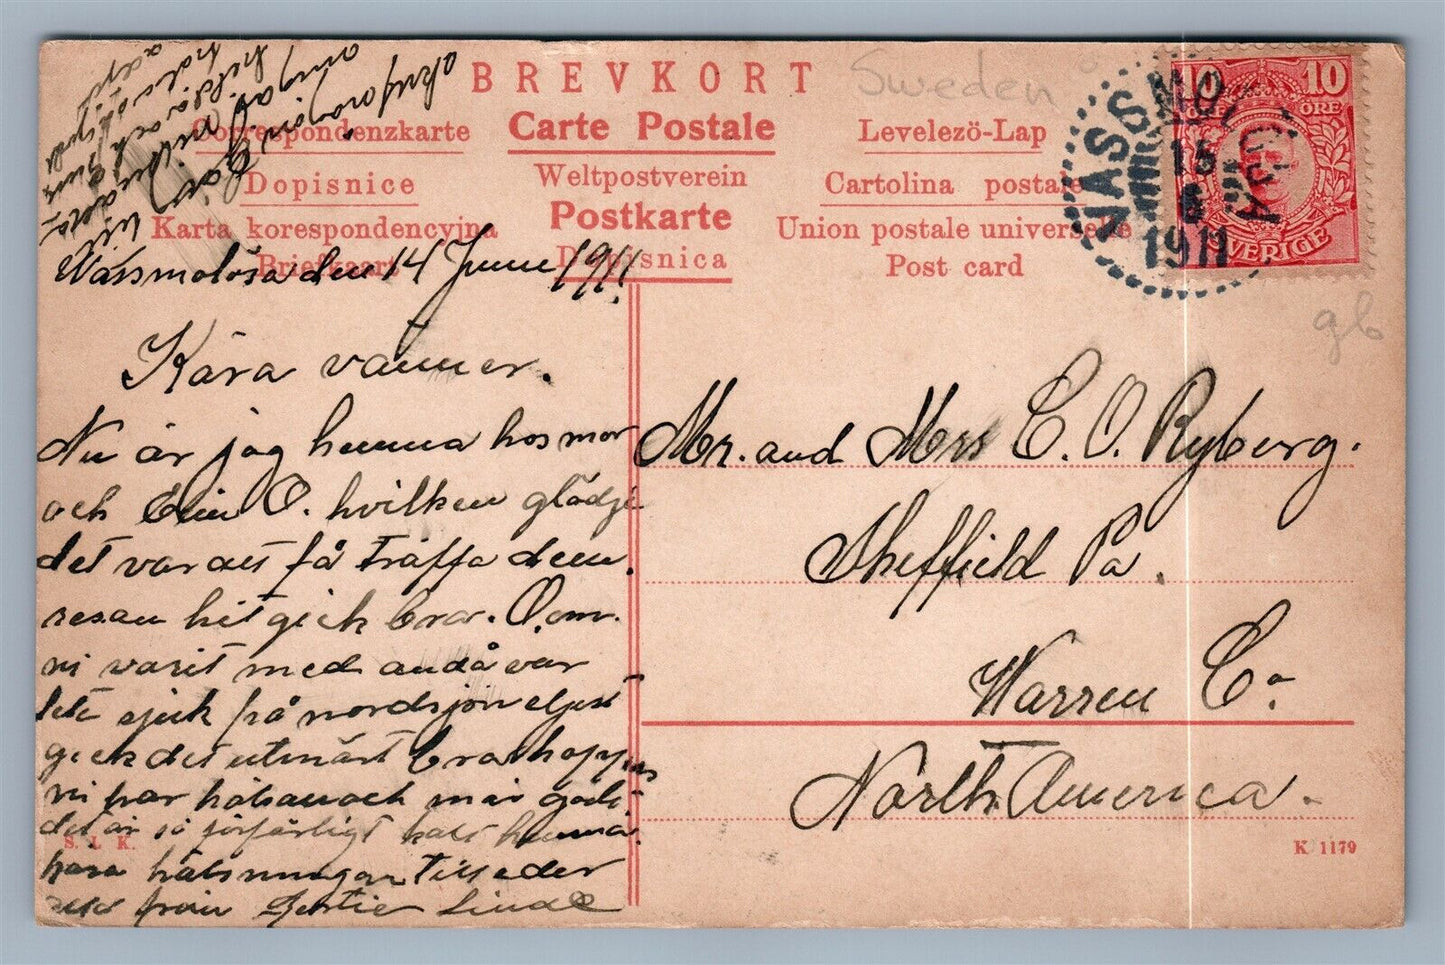 BREVKORT
Sweden
Correspondenzkarte
Carte Postale
Levelező-Lap
Dopisnice
Weltpostverein
Cartolina postale
Karta korespondencyjna
Postkarte
Union postale universelle
Briefkaart
Dopisnica
Post card
10 10
ÖRE
SVERIGE
VÄSSMOLÖSA
15
6
1911
gb
Wässmolösa den 14 Juni 1911.
Kära vänner.
Nu är jag hemma hos mor
och O. hvilken glädje
det var att få träffa dem.
resan hit gick bra. O. om
ni varit med ändå var
lite sjuk på nordsjön eljest
gick det utmärkt bra hoppas
ni har hälsan och mår godt
det är så förfärligt kallt hemma.
kära hälsningar till eder
från Gertie Linde
Mr. and Mrs C. O. Ryberg.
Sheffield Pa.
Warren Co.
North America.
S. L. K.
K 1179